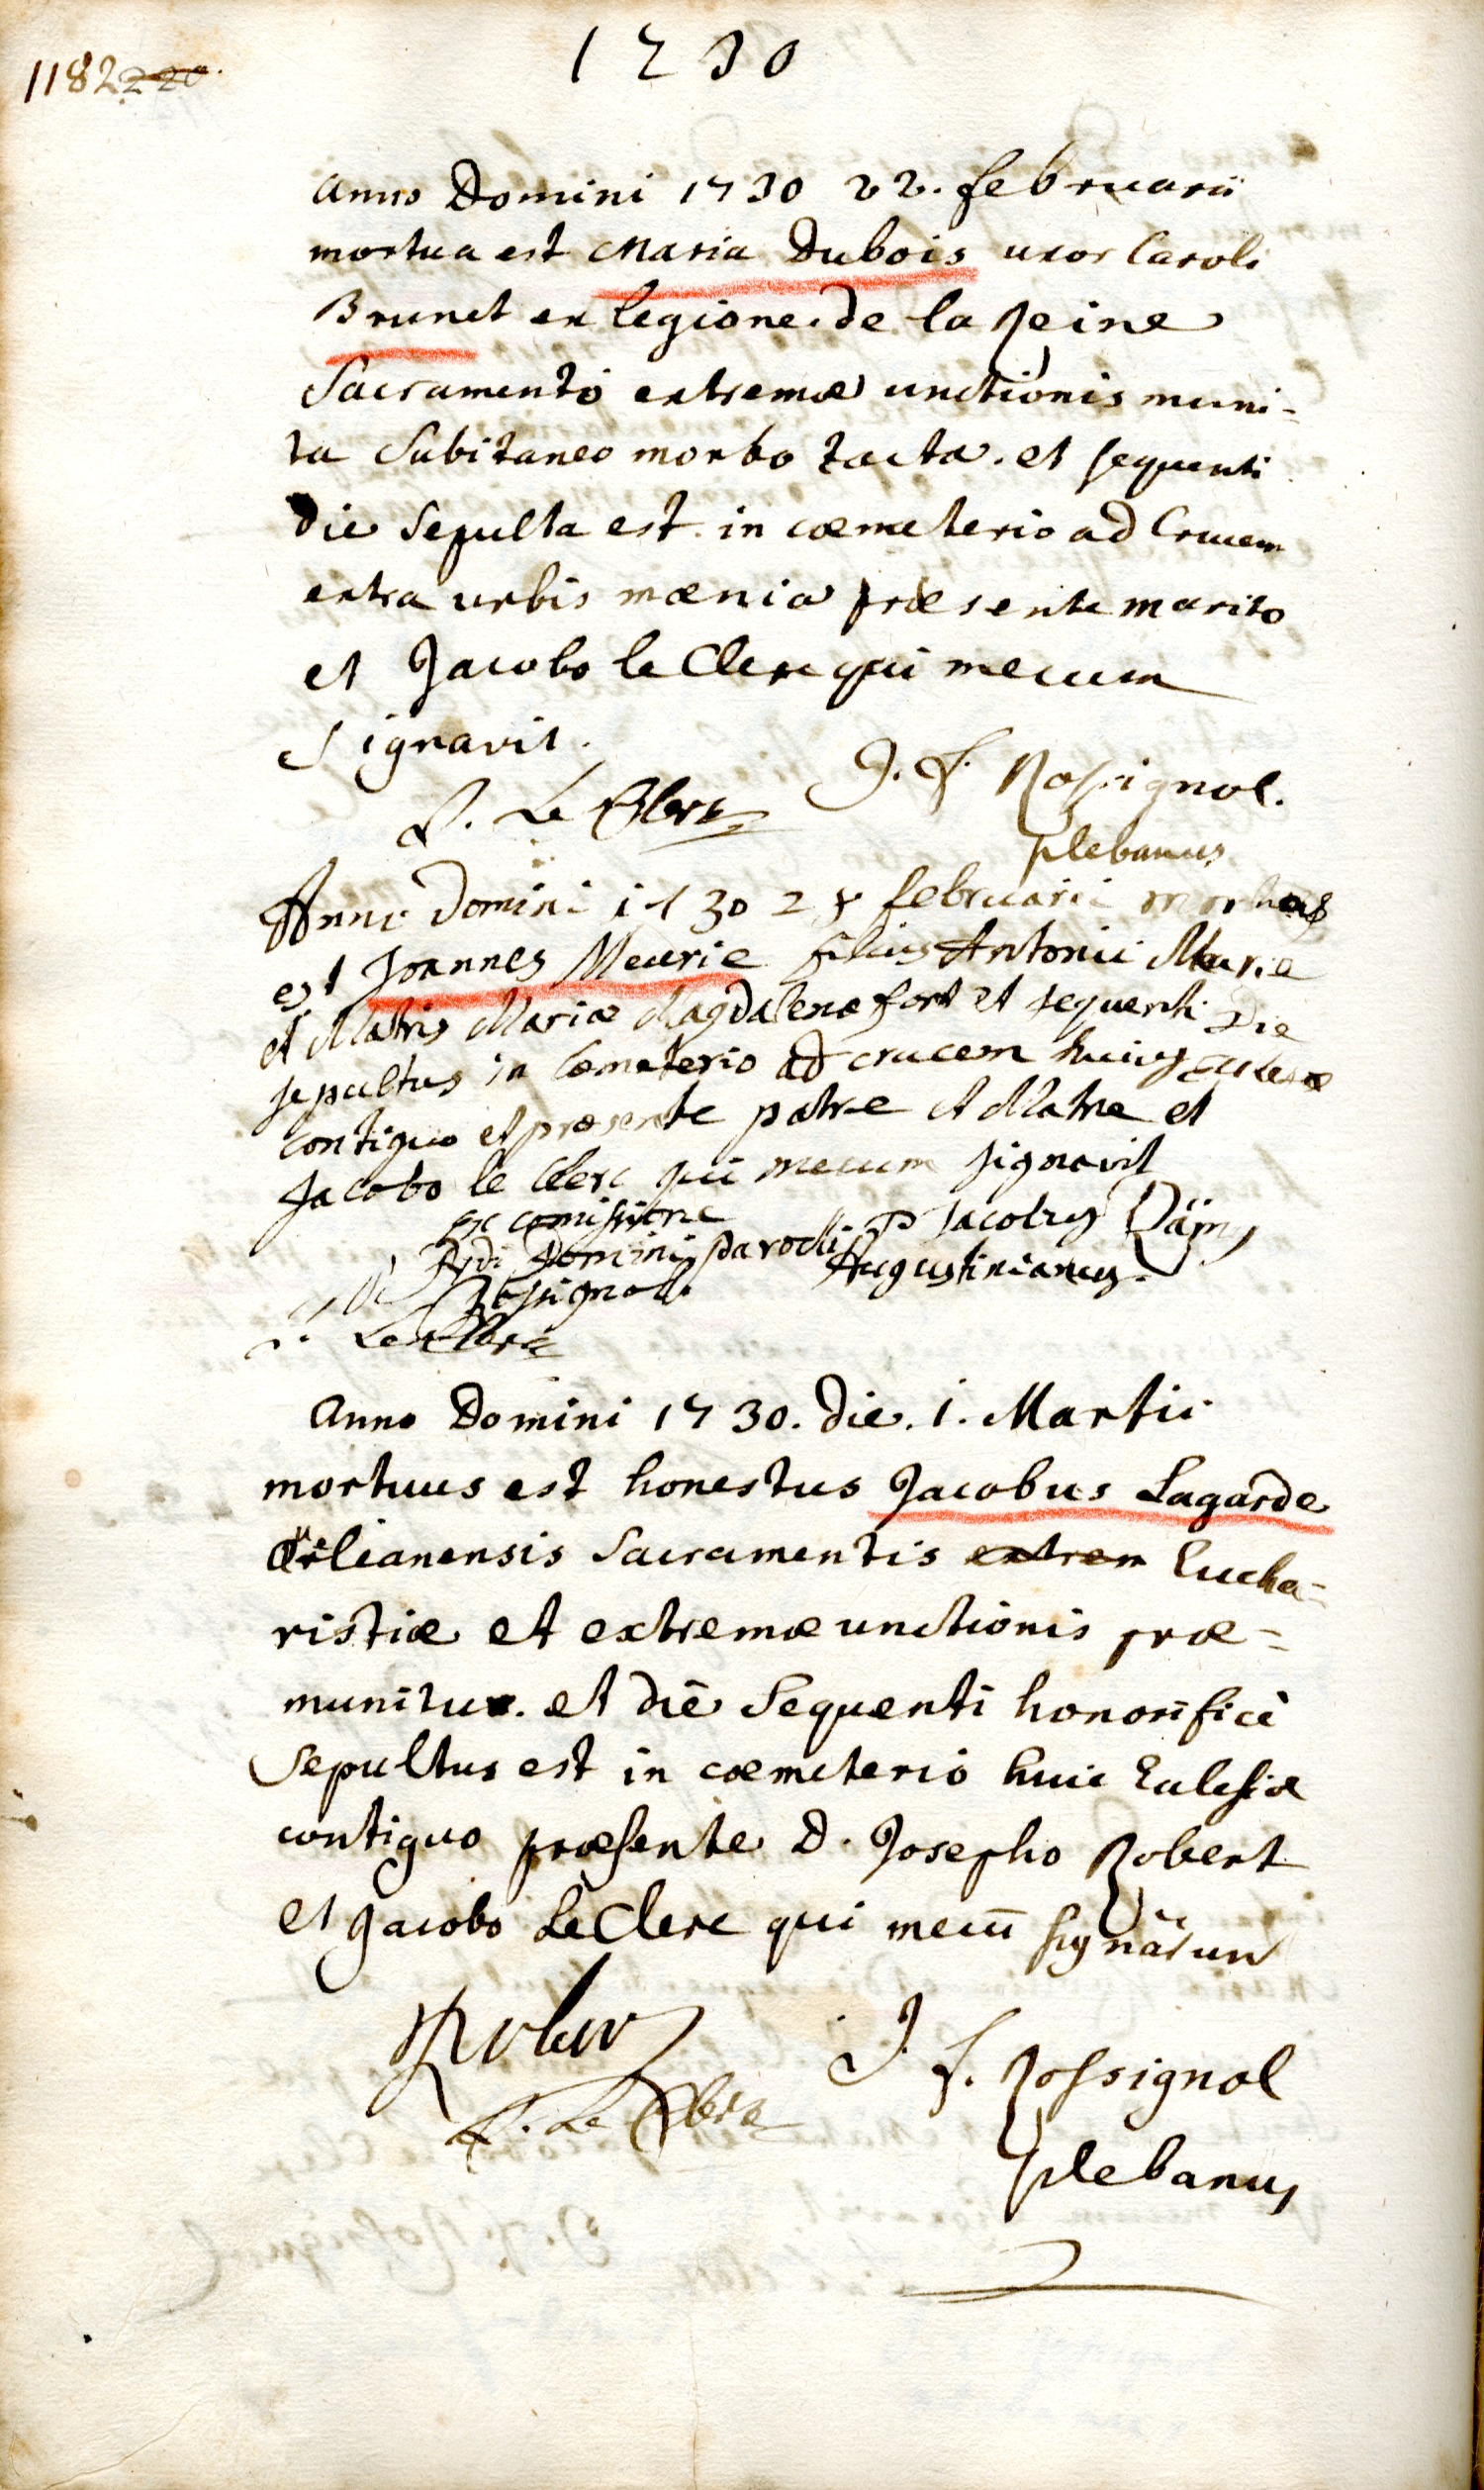 1730
1182 220
Anno Domini 1730 22. februarii
mortua est Maria Dubois uxor Caroli
Brunet ex legione de la Reine
Sacramento extremæ unctionis muni=
ta Subitaneo morbo tacta. et sequenti
die Sepulta est in cœmeterio ad Crucem
extra urbis mœnia præsente marito
et Jacobo le Clerc qui mecum
Signavit.
J. Le Clerc J. F. Rossignol.
plebanus
Anno Domini 1730 februarii mortuus
est Joannes Meurie filius Antonii Meurie
et Matris Mariæ Magdalenæ fort et sequenti Die
sepultus in Cœmeterio ad crucem huius Ecclesiæ
contiguo et præsente patre et Matre et
Jacobo le Clerc qui mecum signavit
ex comissione P Jacobus
Rdi Domini parochi Augustinianus.
Rossignol.
J. Le Clerc
Anno Domini 1730. die. 1. Martii
mortuus est honestus Jacobus Lagarde
Aurelianensis Sacramentis extrem Eucha=
ristiæ et extremæ unctionis præ=
munitus. et die Sequenti honorificè
Sepultus est in cœmeterio huic Ecclesiæ
contiguo præsente D. Josepho Robert
et Jacobo Le Clerc qui mecū signarun
Robert J. F. Rossignol
J. Le Clerc
plebanus